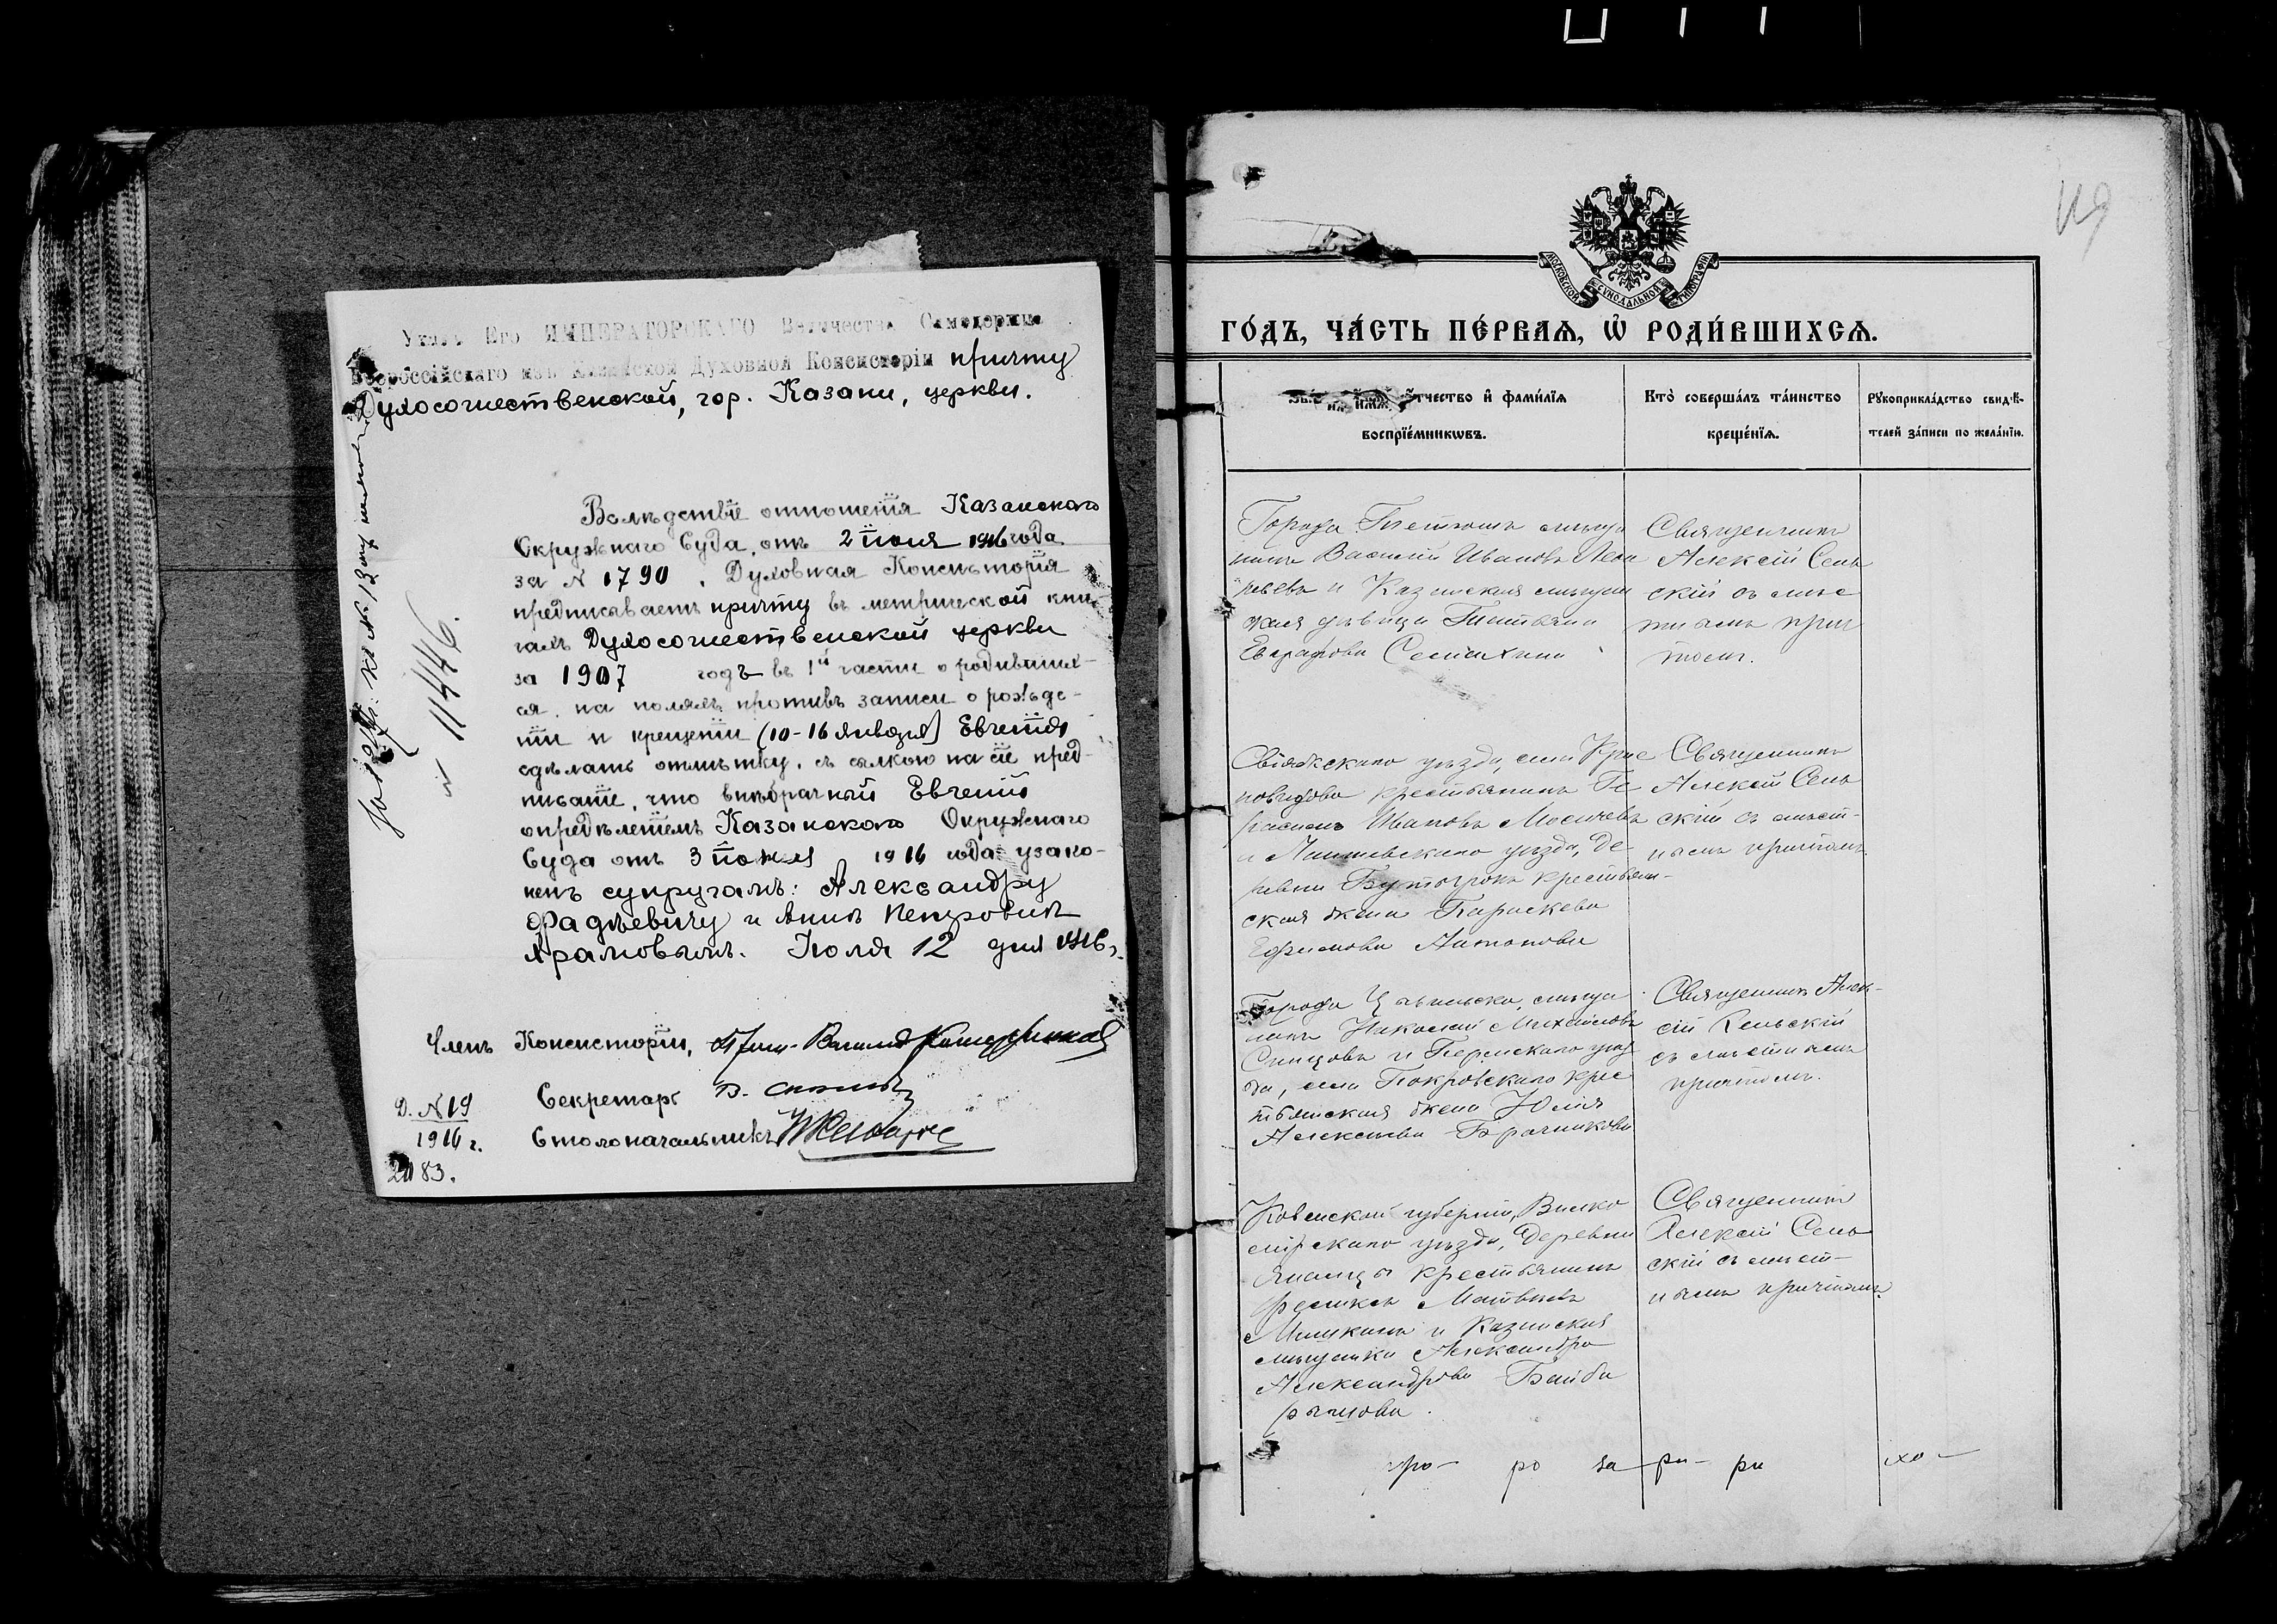 Указъ Его ИМПЕРАТОРСКАГО Величества Самодержца
Всероссійскаго изъ Казанской Духовной Консисторіи причту
Духосошественской, гор. Казани, церкви.
Вслѣдствіе отношенія Казанскаго
Окружнаго Суда, отъ 2 іюля 1916 года
за № 1790, Духовная Консисторія
предписываетъ причту въ метрической кни-
гахъ Духосошественской церкви
за 1907 годъ въ 1й части о родивших-
ся, на поляхъ противъ записи о рожде-
ніи и крещеніи (10-16 января) Евгенія
сдѣлать отмѣтку, съ ссылкою на сіе пред-
писаніе, что внѣбрачный Евгеній
опредѣленіемъ Казанскаго Окружнаго
Суда отъ 3 іюня 1916 года узако-
ненъ супругамъ: Александру
Фадѣевичу и Аннѣ Петровнѣ
Храмовымъ. Іюля 12 дня 1916 г.
№ 11446.
Членъ Консисторіи,
Секретарь
Столоначальникъ
Д. № 19
1916 г.
2083.
119
МОСКОВСКОЙ СѴНОДАЛЬНОЙ ТИПОГРАФІИ
ГО́ДЪ, ЧА́СТЬ ПЕ́РВАЯ, Ѽ РОДИ́ВШИХСЯ.
и҆́мѧ, ѻ҆́тчество и҆ фами́лїѧ
воспрїе́мникѡвъ.
Кто̀ соверша́лъ та́инство
креще́нїѧ.
Рꙋкоприкла́дство свидѣ́-
телей за́писи по жела́нїю.
Города Тетюшъ мѣща
нинъ Василій Ивановъ Леон
тьевъ и Казанская мѣщан
ская дѣвица Татьяна
Евграфова
Священникъ
Алексій Сель
скій съ мѣс
тнымъ прич
томъ.
Свіяжскаго уѣзда, села Крас
новидова крестьянинъ Ге
расимъ Ивановъ Мосичевъ
и Лаишевскаго уѣзда, де
ревни крестьян-
ская жена Параскева
Ефимова Антонова
Священникъ
Алексій Сель
скій съ мѣст-
нымъ причтомъ.
Города Цивильска, мѣща
нинъ Николай Михайловъ
Спицовъ и Пермскаго уѣз
да, села Покровскаго крес
тьянская жена Юлія
Алексѣева Братчикова
Священникъ Алек-
сій Сельскій
съ мѣстнымъ
причтомъ.
Ковенской губерніи, Вилко
мірскаго уѣзда, деревни
крестьянинъ
Феликсъ Матвѣевъ
Мишкинъ и Казанская
мѣщанка Александра
Александрова Байба
рышова.
Священникъ
Алексій Сель
скій съ мѣст-
нымъ причтомъ.
ро- ро за- ри- ри хо-